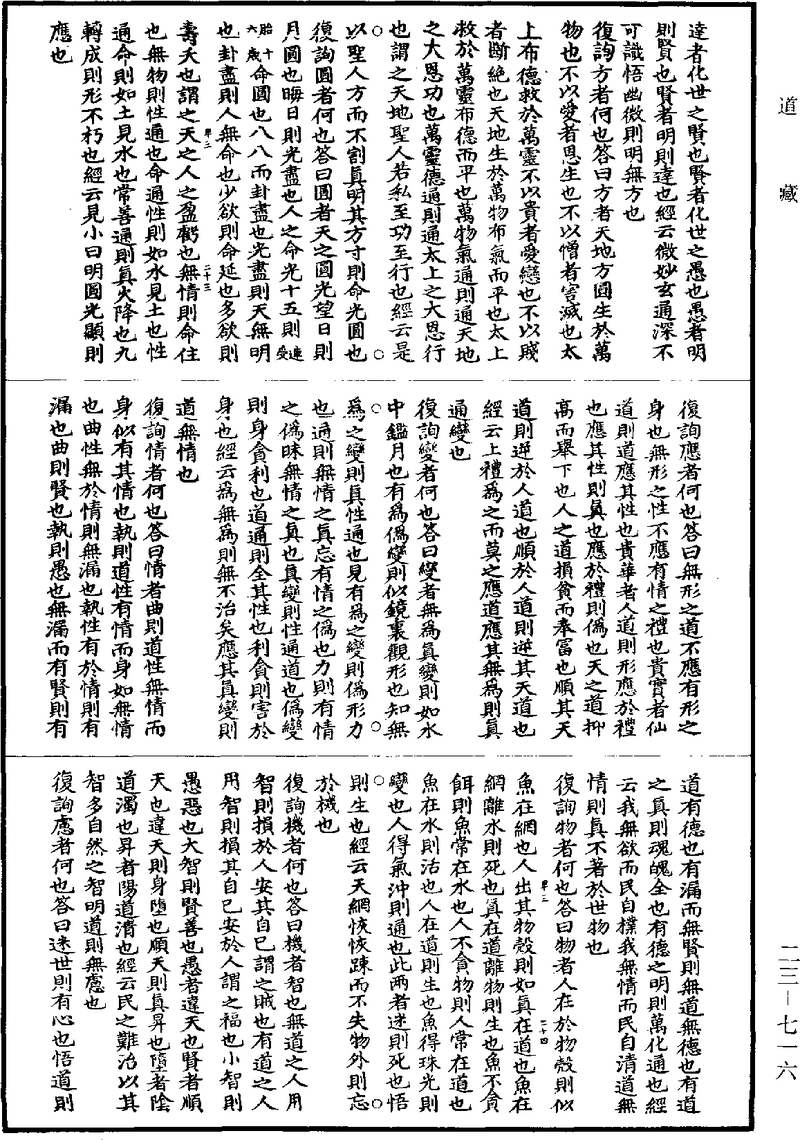 道藏
達者化世之賢也賢者化世之愚也愚者明
則賢也賢者明則達也經云微妙玄通深不
可識悟幽微則明無方也
復詢方者何也答曰方者天地方圓生於萬
物也不以愛者恩生也不以憎者害滅也太
上布德救於萬靈不以貴者愛戀也不以賤
者斷絕也天地生於萬物布氣而平也太上
救於萬靈布德而平也萬物氣通則通天地
之大恩功也萬靈德通則通太上之大恩行
也謂之天地聖人若私至功至行也經云是
以聖人方而不割真明其方寸則命光圓也
復詢圓者何也答曰圓者天之圓光望日則
月圓也晦日則光盡也人之命光十五則連受
胎十六歲命圓也八八而卦盡也光盡則天無明
也卦盡則人無命也少欲則命延也多欲則
壽夭也謂之天之人之盈虧也無情則命住
也無物則性通也命通性則如水見土也性
通命則如土見水也常善通則真火降也九
轉成則形不朽也經云見小曰明圓光顯則
應也
復詢應者何也答曰無形之道不應有形之
身也無形之性不應有情之禮也貴實者仙
道則道應其性也貴華者人道則形應於禮
也應其性則真也應於禮則偽也天之道抑
高而舉下也人之道損貧而奉富也順其天
道則逆於人道也順於人道則逆其天道也
經云上禮為之而莫之應道應其無為則真
通變也
復詢變者何也答曰變者無為真變則如水
中鑑月也有為偽變則似鏡裏觀形也知無
為之變則真性通也見有為之變則偽形力
也通則無情之真忘有情之偽也力則有情
之偽昧無情之真也真變則性通道也偽變
則身貪利也道通則全其性也利貪則害於
身也經云為無為則無不治矣應其真變則
道無情也
復詢情者何也答曰情者曲則道性無情而
身似有其情也執則道性有情而身如無情
也曲性無於情則無漏也執性有於情則有
漏也曲則賢也執則愚也無漏而有賢則有
道有德也有漏而無賢則無道無德也有道
之真則魂魄全也有德之明則萬化通也經
云我無欲而民自樸我無情而民自清道無
情則真不著於世物也
復詢物者何也答曰物者人在於物殼則似
魚在網也人出其物殼則如真在道也魚在
網離水則死也真在道離物則生也魚不貪
餌則魚常在水也人不貪物則人常在道也
魚在水則活也人在道則生也魚得珠光則
變也人得氣沖則通也此兩者迷則死也悟
則生也經云天網恢恢踈而不失物外則忘
於機也
復詢機者何也答曰機者智也無道之人用
智則損於人安其自己謂之賊也有道之人
用智則損其自己安於人謂之福也小智則
愚惡也大智則賢善也愚者違天也賢者順
天也違天則身墮也順天則真昇也墮者陰
道濁也昇者陽道清也經云民之難治以其
智多自然之智明道則無慮也
復詢慮者何也答曰迷世則有心也悟道則
二三－七一六